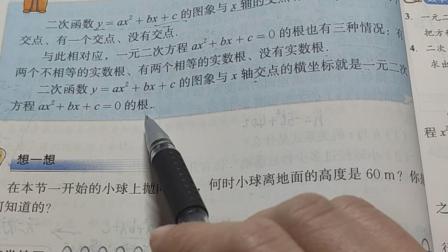 二次函数 y = ax² + bx + c 的图象与 x 轴的交点
交点、有一个交点、没有交点.
与此相对应，一元二次方程 ax² + bx + c = 0 的根也有三种情况：有
两个不相等的实数根、有两个相等的实数根、没有实数根.
二次函数 y = ax² + bx + c 的图象与 x 轴交点的横坐标就是一元二次
方程 ax² + bx + c = 0 的根.
想一想
在本节一开始的小球上抛 何时小球离地面的高度是 60 m？你
知道的？
3. 一元
把方
4. 二次
求出
程 x
之